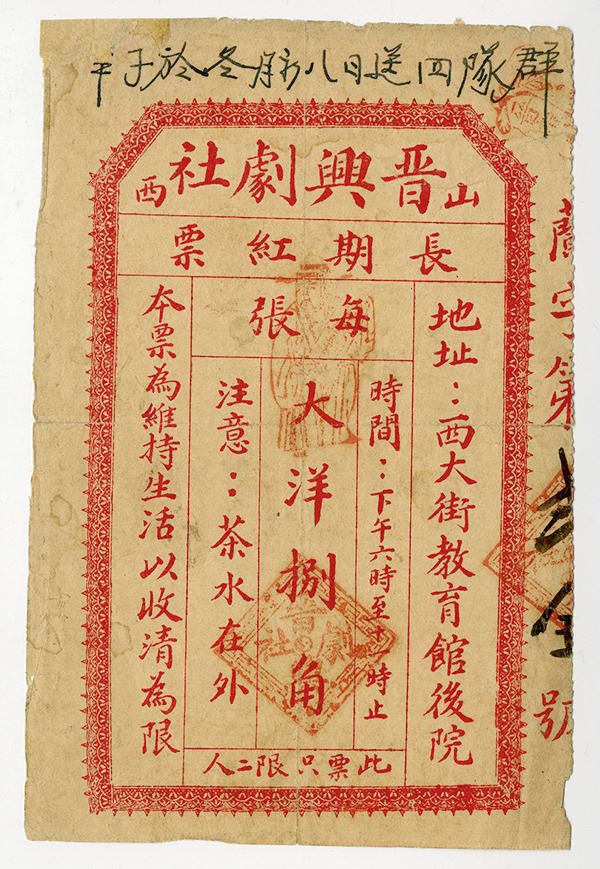 於冬月初八日送四隊群
山西晉興劇社
長期紅票
地址：西大街教育館後院
每張
時間：下午六時至十一時止
大洋捌角
注意：茶水在外
本票為維持生活以收清為限
此票只限二人
字第
號
晉劇社